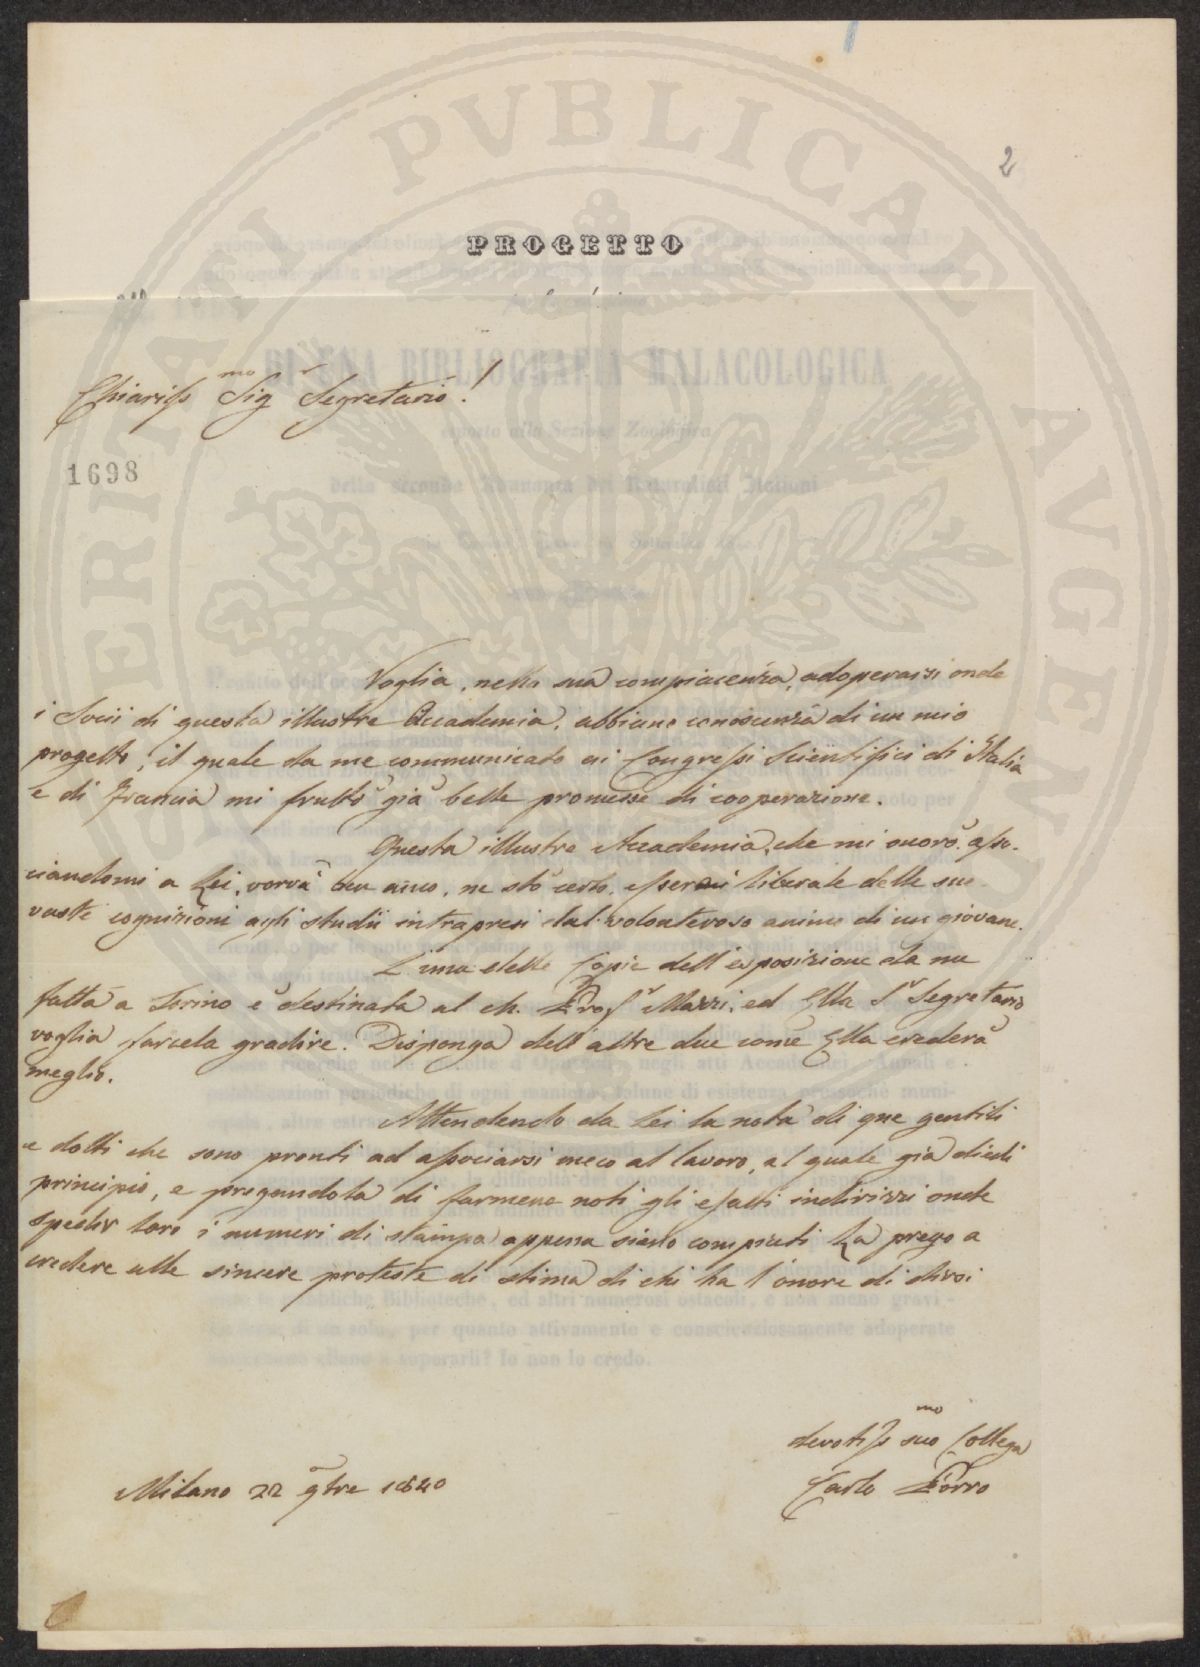 2
PROGETTO
DI UNA BIBLIOGRAFIA MALACOLOGICA
Chiariss.mo Sig.r Segretario!
1698
Voglia, nella sua compiacenza, adoperarsi onde
i Socii di questa illustre Accademia, abbiano conoscenza di un mio
progetto, il quale da me communicato ai Congressi Scientifici di Italia
e di Francia mi fruttò già belle promesse di cooperazione.
Questa illustre Accademia, che mi onorò asso-
ciandomi a Lei, vorrà ben anco, ne stò certo, essermi liberale delle sue
vaste cognizioni agli studii intrapresi dal volonteroso animo di un giovane.
L'una delle Copie dell'esposizione da me
fatta a Torino è destinata al ch. Prof.r Mazzi, ed Ella S.r Segretario
voglia farcela gradire. Disponga dell'altre due come Ella crederà
meglio.
Attendendo da Lei la nota di que gentili
e dotti che sono pronti ad associarsi meco al lavoro, al quale già diedi
principio, e pregandola di farmene noti gli esatti indirizzi onde
spedir loro i numeri di stampa appena siano compiuti La prego a
credere alle sincere proteste di stima di chi ha l'onore di dirsi
devotiss.mo suo Collega
Carlo Porro
Milano 22 9bre 1840
PUBLICAE
VERITATI
AUGENDO